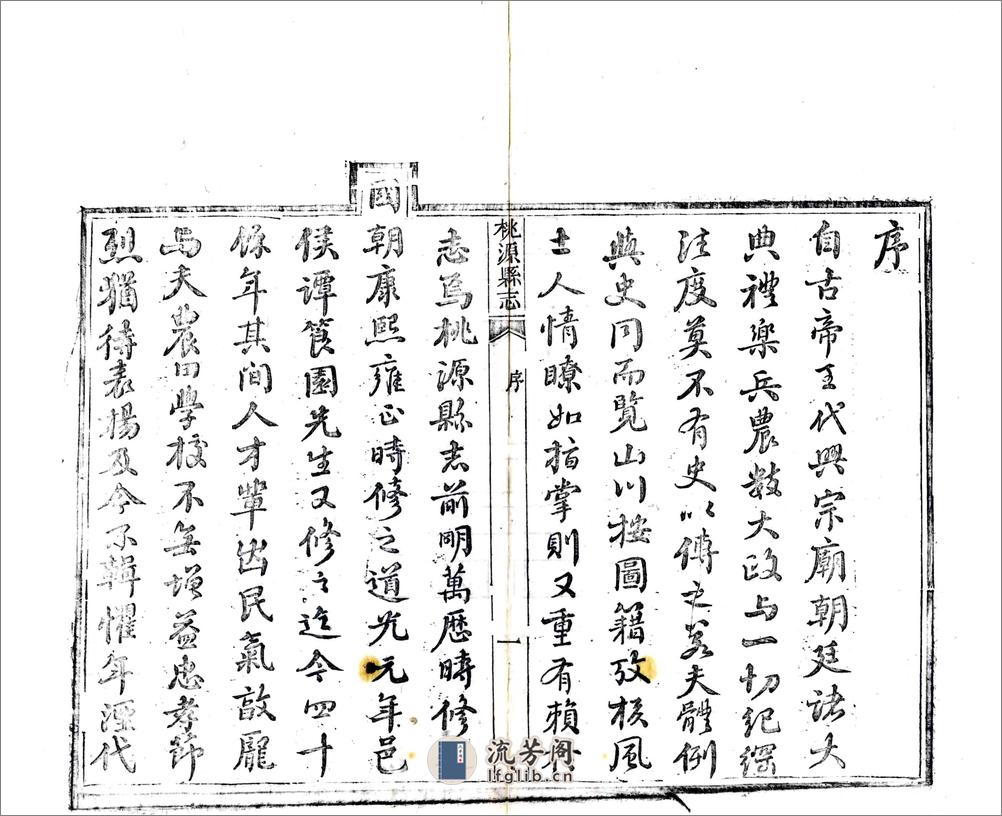 序
自古帝王代興宗廟朝廷諸大
典禮樂兵農數大政与一切紀綱
法度莫不有史以傳之若夫體例
與史同而覽山川按圖籍攷核風
士人情瞭如指掌則又重有賴於
桃源縣志
序
一
志焉桃源縣志前明萬歷時修
國
朝康熙雍正時修之道光元年邑
侯譚筤園先生又修之迄今四十
餘年其間人才輩出民氣敦龐
与夫農田學校不無增益忠孝節
烈猶待表揚及今不輯懼年湮代
流芳阁
lfglib.cn